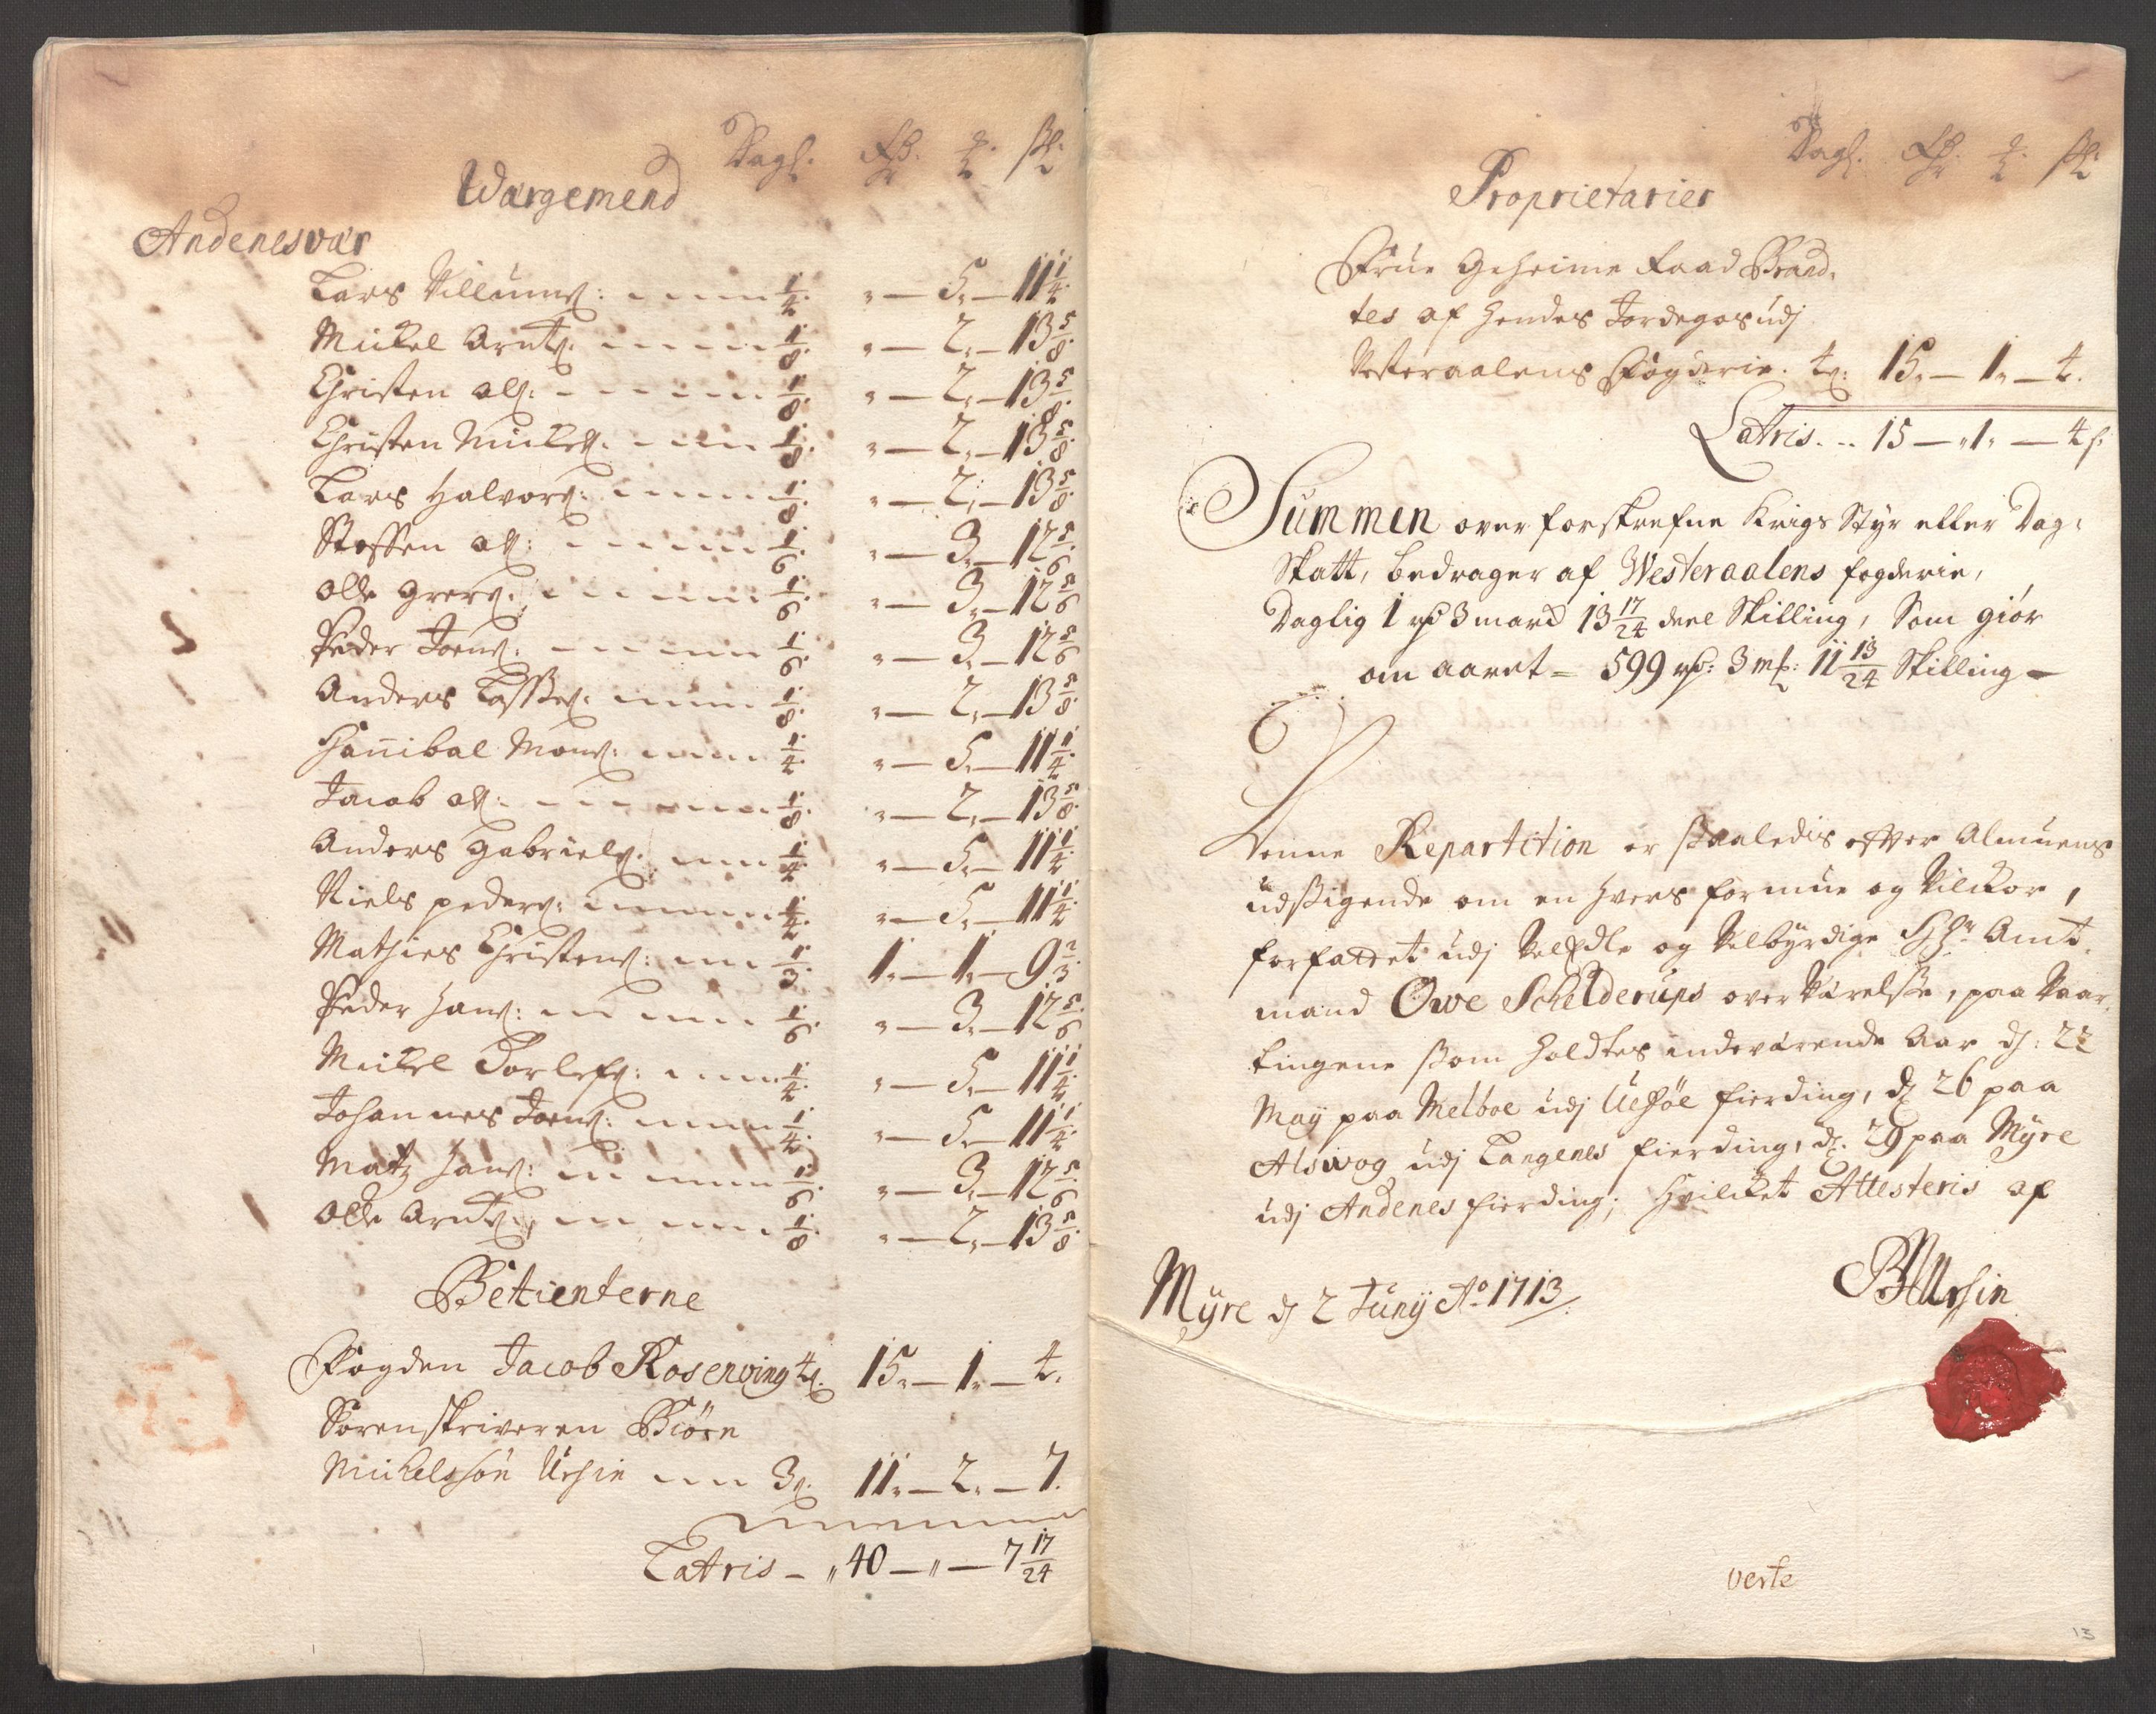 Dagl. Rd. mk. sk.
Wærgemend
Andenesvær
Lars Villums: 1/4. " — 5. — 11 1/4.
Mickel Arnts: 1/8. " — 2. — 13 5/8.
Christen Ols: 1/8. " — 2. — 13 5/8.
Christen Mickels: 1/8. " — 2. — 13 5/8.
Lars Halvors: 1/8. " — 2. — 13 5/8.
Steffen Ols: 1/6. " — 3. — 12 5/6.
Olle Grers: 1/6. " — 3. — 12 5/6.
Peder Joens: 1/6. " — 3. — 12 5/6.
Anders Lasses: 1/8. " — 2. — 13 5/8.
Hanibal Mons: 1/4. " — 5. — 11 1/4.
Jacob Ols: 1/8. " — 2. — 13 5/8.
Anders Gabriels: 1/4. " — 5. — 11 1/4.
Niels peders: 1/4. " — 5. — 11 1/4.
Mathies Christens: 1/3. 1. — 1. — 9 2/3.
Peder Hans: 1/6. " — 3. — 12 5/6.
Mickel Torlefs: 1/4. " — 5. — 11 1/4.
Johannes Joens: 1/4. " — 5. — 11 1/4.
Matz Hans: 1/6. " — 3. — 12 5/6.
Olle Arnts: 1/8. " — 2. — 13 5/8.
Betienterne
Fogden Jacob Rosenving 4s. 15. — 1. — 4.
Sorenskriveren Biörn
Michelssön Ursin 3s. 11. — 2. — 7.
Latris — " 40 — " — 7 17/24
Dagl. Rd. mk. sk.
Proprietarier
Frue Geheime Raad Brand-
tes af hendes Jordegods udj
Vesteraalens Fogderie. 4s: 15. — 1. — 4.
Latris... 15 — " 1 " — 4 s:
Summen over forskrefne Krigs Styr eller Dag-
Skatt, bedrager af Westeraalens fogderie,
Daglig 1 rd 3 marck 13 17/24 deel Skilling, Som giör
om aaret = 599 rd: 3 mk: 11 13/24 Skilling —
Denne Repartition er saaledis efter Almuens
udsigende om en hvers formue og Vilckor,
forfattet udj Veledle og Velbyrdige Hr Amt-
mand Owe Schelderups overværelse, paa Vaar-
tingene som holdtes indeværende Aar d: 22
Maij paa Melboe udj Ulföe fierding, d. 26 paa
Alswog udj Langenes fierding, d. 29 paa Myre
udj Andenes fierding; hvilcket Attesteris af
Myre d 2 Junij Ao 1713
BMUrsin
verte
13